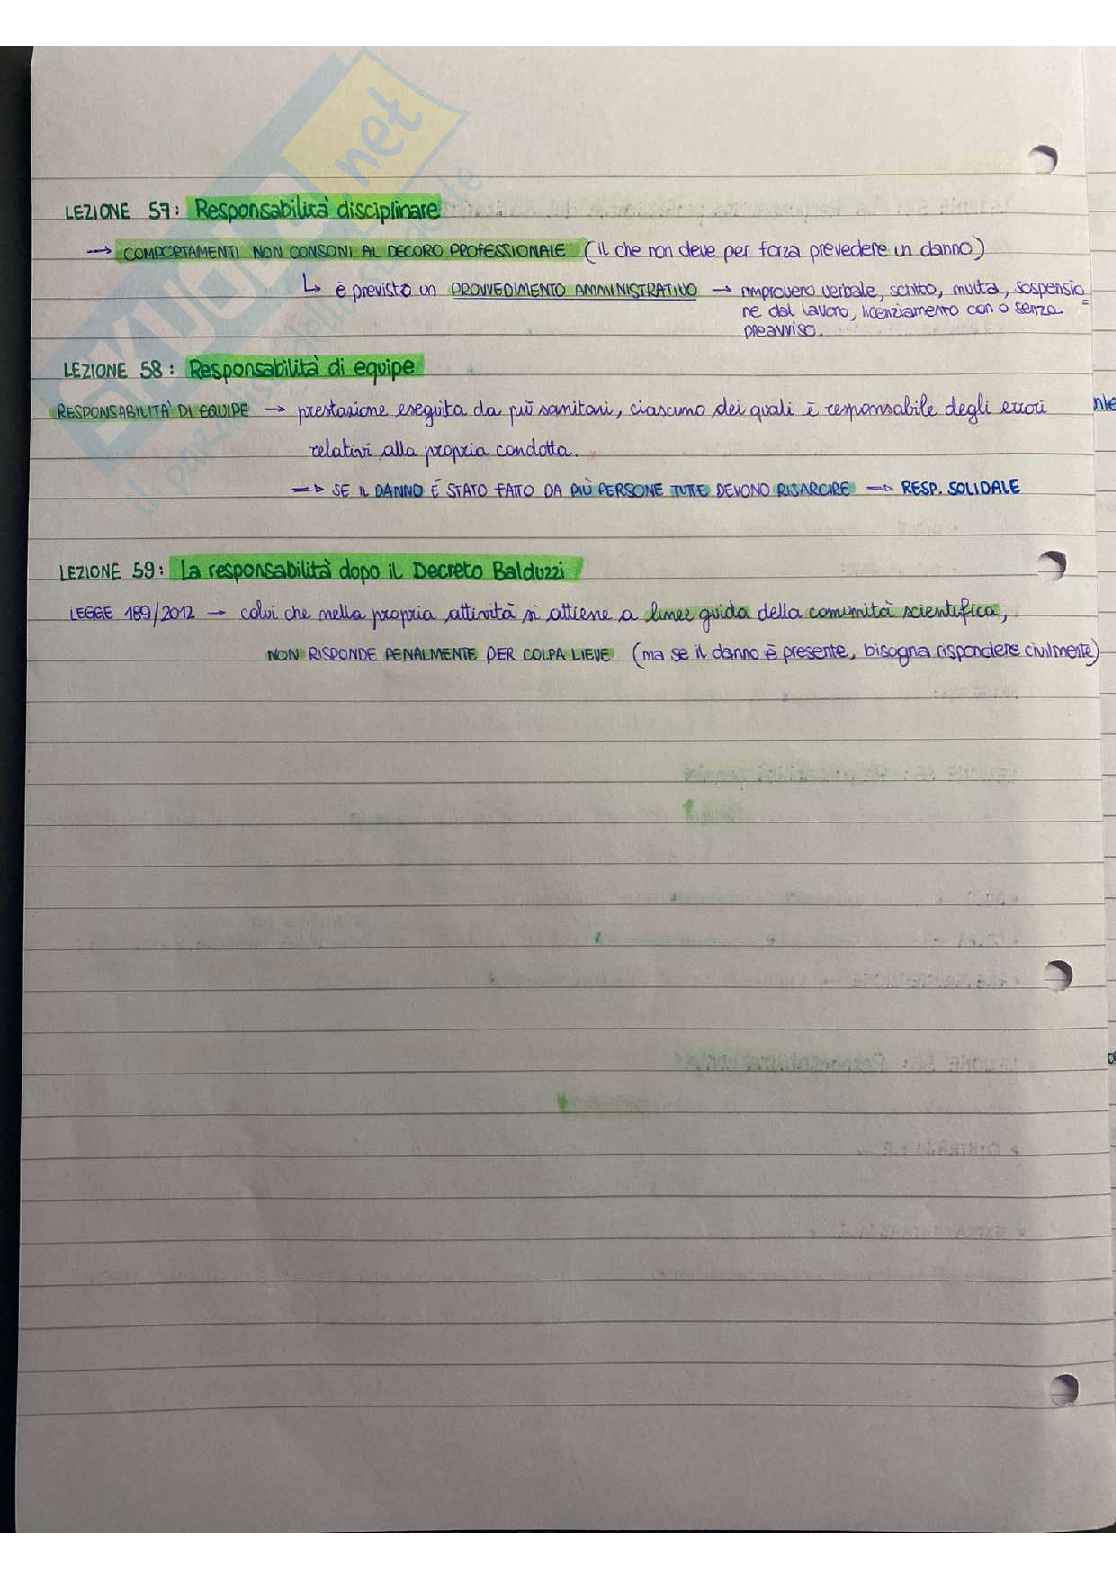 LEZIONE 57: Responsabilità disciplinare
→ COMPORTAMENTI NON CONSONI AL DECORO PROFESSIONALE (il che non deve per forza prevedere un danno)
↳ è previsto un PROVVEDIMENTO AMMINISTRATIVO → rimprovero verbale, scritto, multa, sospensio
ne dal lavoro, licenziamento con o senza
preavviso.
LEZIONE 58: Responsabilità di equipe
RESPONSABILITÀ DI EQUIPE → prestazione eseguita da più sanitari, ciascuno dei quali è responsabile degli errori
relativi alla propria condotta.
→ SE IL DANNO È STATO FATO DA PIÙ PERSONE TUTTE DEVONO RISARCIRE → RESP. SOLIDALE
LEZIONE 59: La responsabilità dopo il Decreto Balduzzi
LEGGE 189/2012 → colui che nella propria attività si attiene a linee guida della comunità scientifica,
NON RISPONDE PENALMENTE PER COLPA LIEVE (ma se il danno è presente, bisogna rispondere civilmente)